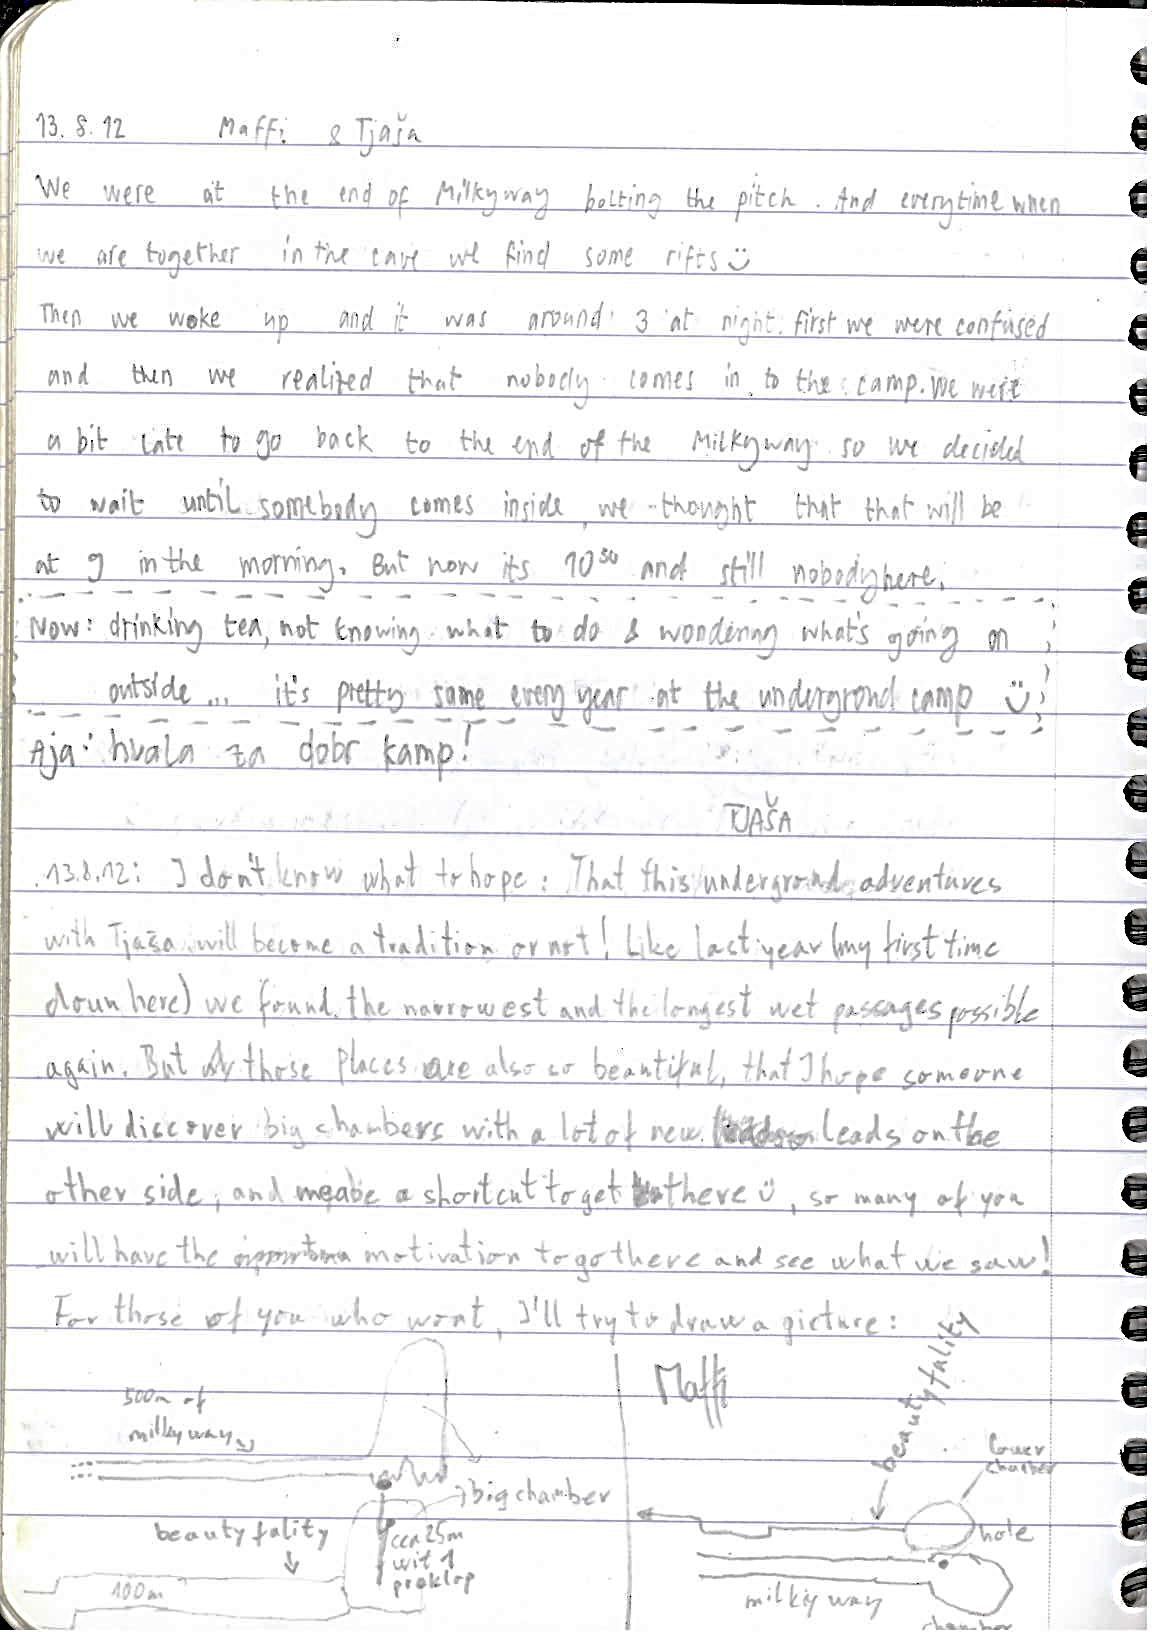 13.8.12 Maffi & Tjaša
We were at the end of Milkyway bolting the pitch. And everytime when
we are together in the cave we find some rifts
Then we woke up and it was around 3 at night. first we were confused
and then we realized that nobody comes in to the camp. We were
a bit late to go back to the end of the Milkyway so we decided
to wait until somebody comes inside, we thought that that will be
at 9 in the morning. But now its 10³⁰ and still nobody here.
Now: drinking tea, not knowing what to do & wondering what's going on
outside... it's pretty same every year at the undergrond camp
Aja: hvala za dobr kamp!
TJAŠA
13.8.12: I don't know what to hope: That this underground adventures
with Tjaša will become a tradition or not! Like last year (my first time
doun here) we found the narrowest and the longest wet passages possible
again. But those places are also so beautiful, that I hope someone
will discover big chambers with a lot of new leads on the
other side, and meabe a shortcut to get there, so many of you
will have the motivation to go there and see what we saw!
For those of you who wont, I'll try to draw a picture:
Maffi
500m of
milky way
big chamber
beauty fality
cca 25m
wit 1
preklop
100m
beauty fality
lower
chamber
hole
milky way
chamber